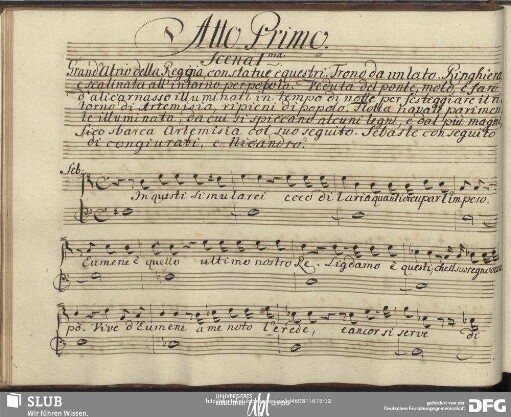 Atto Primo.
Scena I.ma
Grand'Atrio della Reggia, con statue equestri. Trono da un lato. Ringhiera
e scalinata all'intorno per popolo. Veduta del ponte, molo, e faro
d'alicarnasso illuminati in tempo di notte per festeggiare il ri
torno di Artemisia, ripieni di popolo. Flotta navale parimen
te illuminata, da cui si spiccano alcuni legni, e dal più magni
fico sbarca Artemisia col suo seguito. Sebaste con seguito
di congiurati, e Nicandro.
Seb.
In questi simulacri ecco di Caria quanti occupar l'impero.
Eumene è quello ultimo nostro Re. Ligdamo è questi, che il suo regno
pò. Vive d'Eumene a me noto l'erede, e ancor si serve di
SLUB
Wir führen Wissen.
UNIVERSITÄTS
gefördert von der
Deutschen Forschungsgemeinschaft
DFG